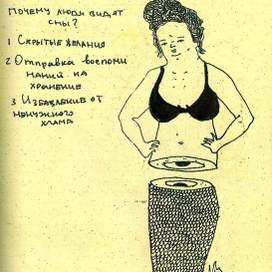 Почему люди видят
сны?
1 Скрытые желания
2 Отправка воспоми
наний на
хранение
3 Избавление от
ненужного
хлама